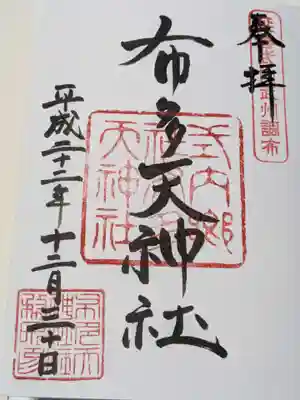 奉拝
武州調布
布多天神社
式内郷社布多天神社
平成二十二年十二月三十日